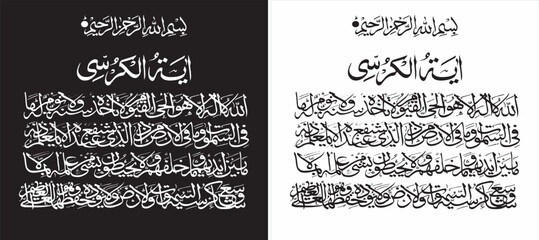 بسم الله الرحمن الرحيم
اية الكرسي
الله لا اله الا هو الحي القيوم لا تاخذه سنة ولا نوم له ما
في السموت وما في الارض من ذا الذي يشفع عنده الا باذنه يعلم
ما بين ايديهم وما خلفهم ولا يحيطون بشيء من علمه الا بما
شاء وسع كرسيه السموت والارض ولا يؤده حفظهما وهو العلي العظيم
بسم الله الرحمن الرحيم
اية الكرسي
الله لا اله الا هو الحي القيوم لا تاخذه سنة ولا نوم له ما
في السموت وما في الارض من ذا الذي يشفع عنده الا باذنه يعلم
ما بين ايديهم وما خلفهم ولا يحيطون بشيء من علمه الا بما
شاء وسع كرسيه السموت والارض ولا يؤده حفظهما وهو العلي العظيم